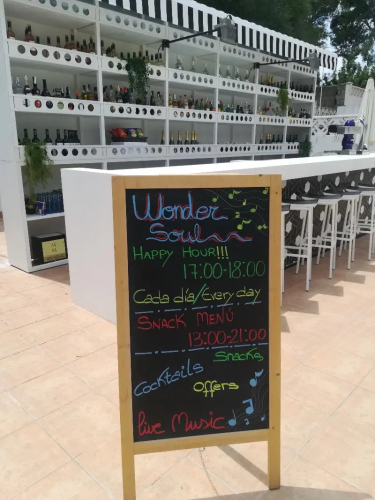 Wonder
Soul
HAPPY HOUR!!!
17:00-18:00
Cada día/Every day
SNACK MENÚ
13:00-21:00
Snacks
Cocktails
Offers
live Music